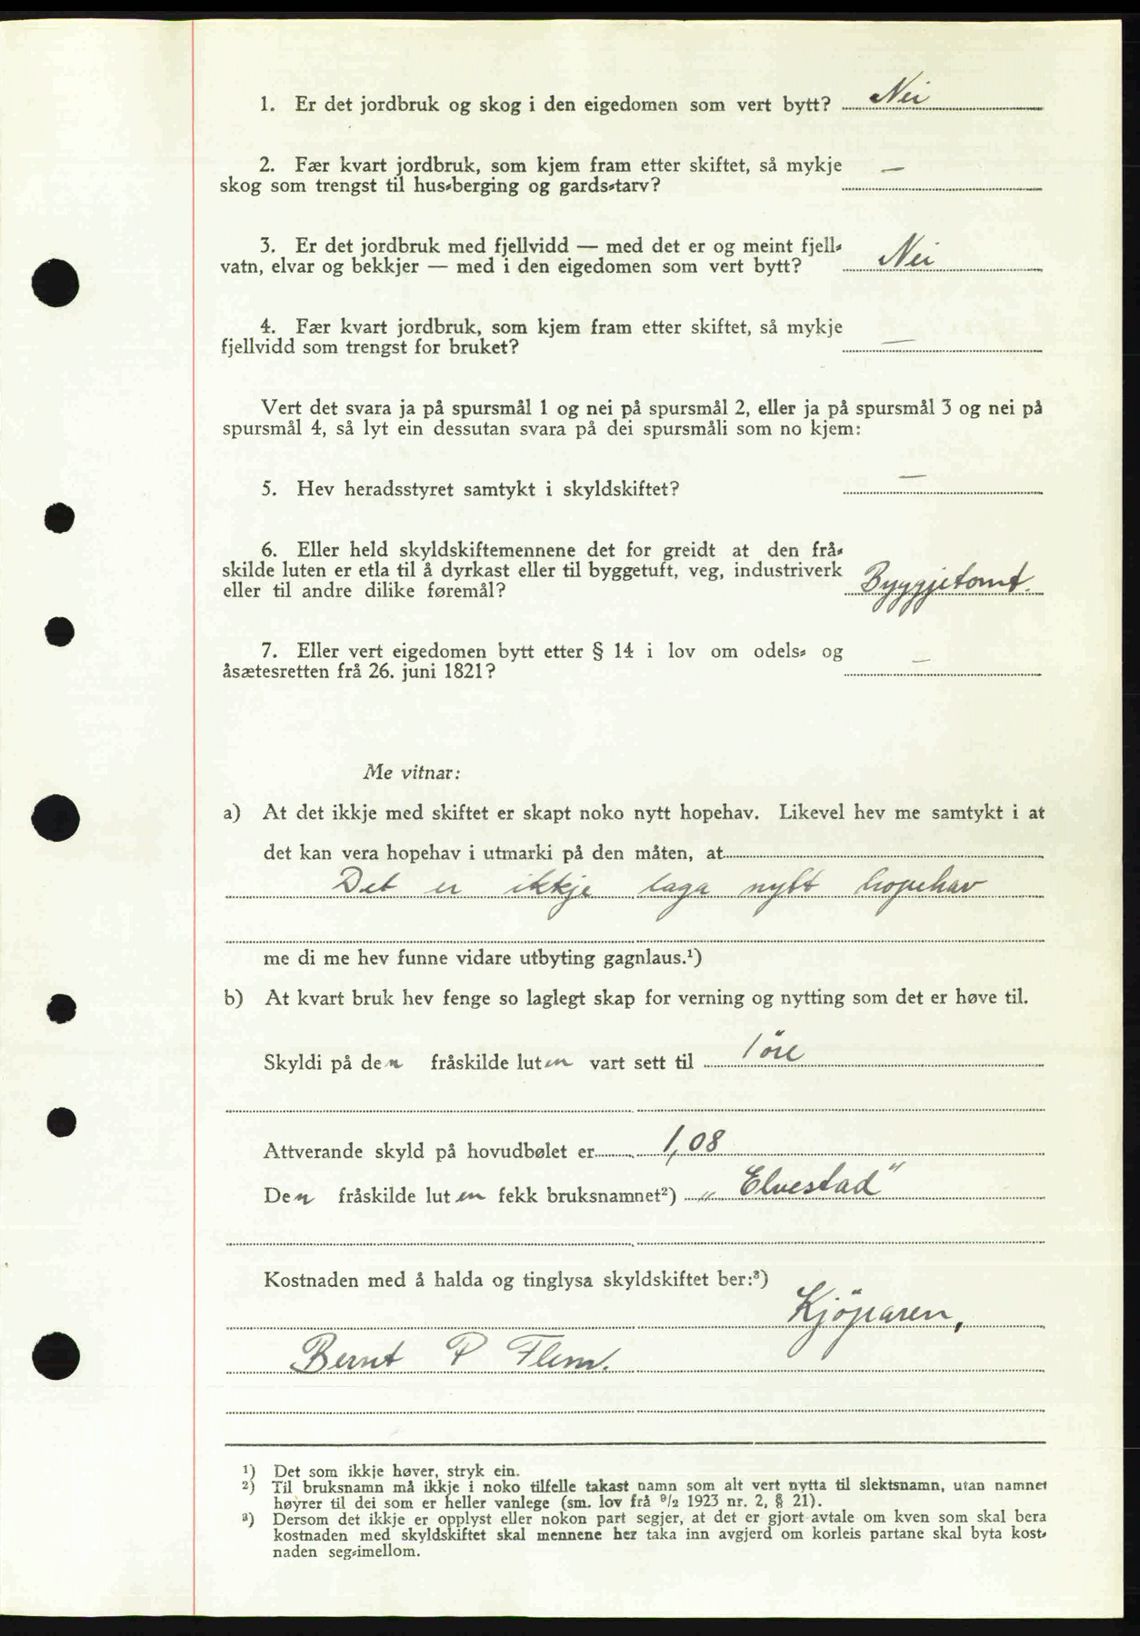 1. Er det jordbruk og skog i den eigedomen som vert bytt? Nei
2. Fær kvart jordbruk, som kjem fram etter skiftet, så mykje
skog som trengst til hus-berging og gards-tarv? —
3. Er det jordbruk med fjellvidd — med det er og meint fjell-
vatn, elvar og bekkjer — med i den eigedomen som vert bytt? Nei
4. Fær kvart jordbruk, som kjem fram etter skiftet, så mykje
fjellvidd som trengst for bruket? —
Vert det svara ja på spursmål 1 og nei på spursmål 2, eller ja på spursmål 3 og nei på
spursmål 4, så lyt ein dessutan svara på dei spursmåli som no kjem:
5. Hev heradsstyret samtykt i skyldskiftet? —
6. Eller held skyldskiftemennene det for greidt at den frå-
skilde luten er etla til å dyrkast eller til byggetuft, veg, industriverk
eller til andre dilike føremål? Byggjetomt.
7. Eller vert eigedomen bytt etter § 14 i lov om odels- og
åsætesretten frå 26. juni 1821? —
Me vitnar:
a) At det ikkje med skiftet er skapt noko nytt hopehav. Likevel hev me samtykt i at
det kan vera hopehav i utmarki på den måten, at
Det er ikkje laga nytt hopehav
me di me hev funne vidare utbyting gagnlaus.¹)
b) At kvart bruk hev fenge so laglegt skap for verning og nytting som det er høve til.
Skyldi på den fråskilde luten vart sett til 1 öre
Attverande skyld på hovudbølet er 1,08
Den fråskilde luten fekk bruksnamnet²) „Elvestad"
Kostnaden med å halda og tinglysa skyldskiftet ber:³)
Kjöparen,
Bernt P Flem.
¹) Det som ikkje høver, stryk ein.
²) Til bruksnamn må ikkje i noko tilfelle takast namn som alt vert nytta til slektsnamn, utan namnet
høyrer til dei som er heller vanlege (sm. lov frå 9/2 1923 nr. 2, § 21).
³) Dersom det ikkje er opplyst eller nokon part segjer, at det er gjort avtale om kven som skal bera
kostnaden med skyldskiftet skal mennene her taka inn avgjerd om korleis partane skal byta kost-
naden seg-imellom.